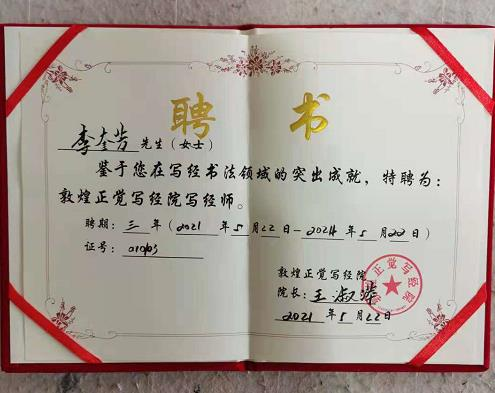 聘 书
李奎芳 先生(女士)
鉴于您在写经书法领域的突出成就,特聘为:
敦煌正觉写经院写经师。
聘期:三 年(2021 年5月22日-2024年5月22日)
证号:
敦煌正觉写经院
院长:王淑萍
2021 年5月22日
正觉写经院